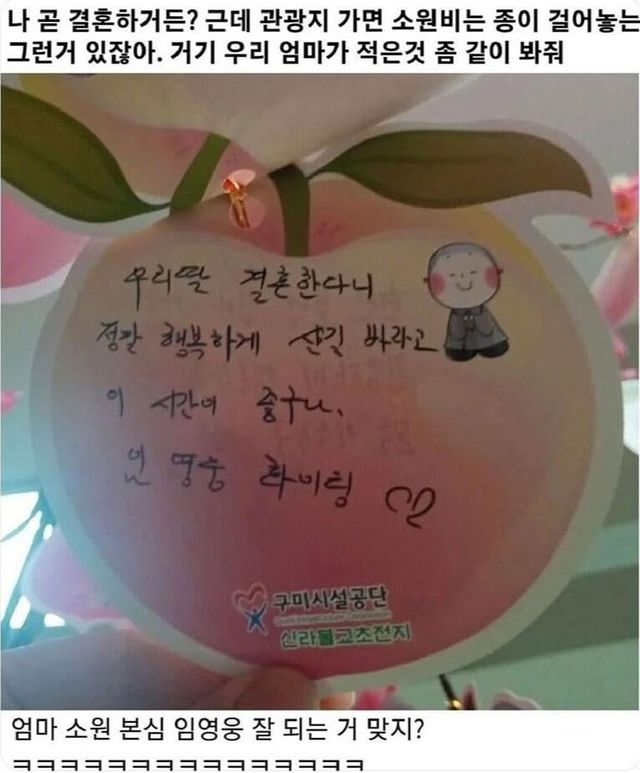 나 곧 결혼하거든? 근데 관광지 가면 소원비는 종이 걸어놓는
그런거 있잖아. 거기 우리 엄마가 적은것 좀 같이 봐줘
우리딸 결혼한다니
정말 행복하게 살길 바라고
이 시간이 좋구나.
임영웅 화이팅 ♡
구미시설공단
신라불교초전지
엄마 소원 본심 임영웅 잘 되는 거 맞지?
ㅋㅋㅋㅋㅋㅋㅋㅋㅋㅋㅋㅋㅋㅋㅋ